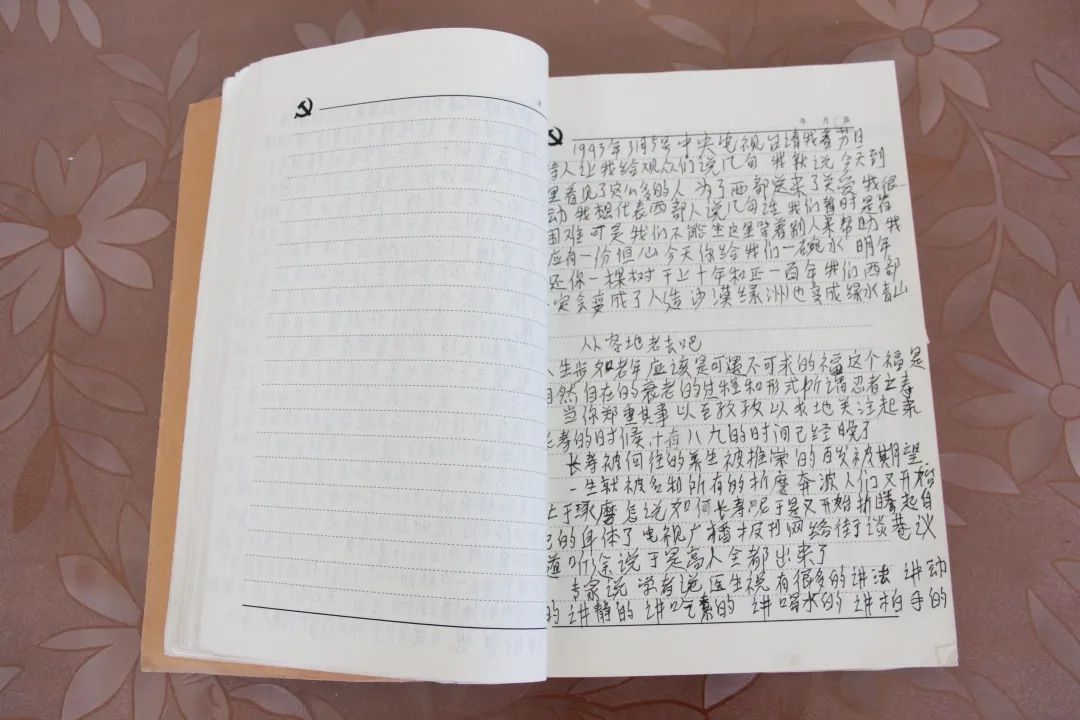 年 月 日
1993年3月5号中央电视台请我看节目
持人让我给观众们说几句 我就说 今天到
里看见了这么多的人 为了西部送来了关爱 我很
动 我想代表西部人说几句话 我们暂时是有
困难 可是我们不能坐这里等着别人来帮助 我
应有一份恒心 今天你给我们一碗水 明年
还你一棵树 干上十年和正一百年 我们西部
定会变成了人造沙漠绿洲 也变成绿水青山
从容地老去吧
人生步如老年 应该是可遇不可求的福 这个福是
自然自在的衰老的过程和形式 所谓忍者之寿
当你郑重其事 以至孜孜以求地关注起来
长寿的时候 十有八九的时间已经晚了
长寿被向往的 养生被推崇的 百岁被期望
一生就被名利所有的折磨奔波 人们又开始
止于琢磨怎说如何长寿呢 于是又开始折腾起自
己的身体了 电视 广播 报刊 网络 街于谈巷议
道听余说 于是高人全都出来了
专家说 学者说 医生说 有很多的讲法 讲动
的 讲静的 讲吃素的 讲喝水的 讲拍手的